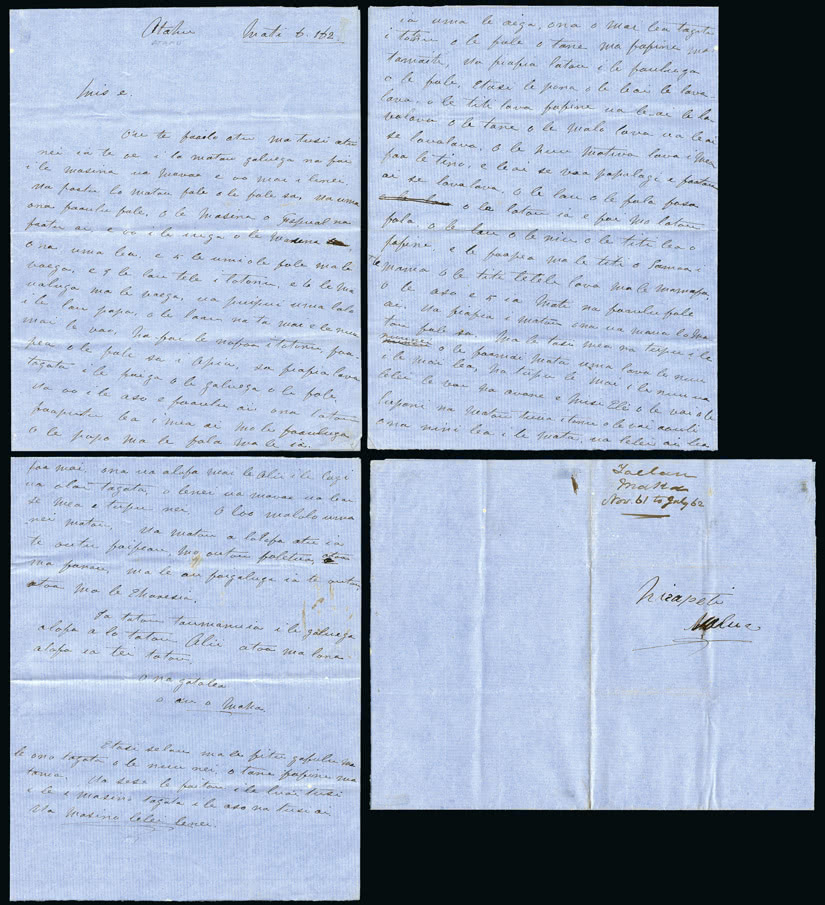 Atafu Mati 6. 162
Misi e.
Ou te faalo atu ma tusi atu
nei ia te oe i lo matou galuega na fai
i le masina ua mavae e oo mai i lenei.
Na faatu lo matou fale o le fale sa, ua uma
ona faaulu fale, O le masina o
faatu ai, e oo i le aiga o le masina
ona uma lea, e 5 le umi o le fale ma le
vaega, e 9 le lau tele i totonu, e le ma
valuga ma le vaega, ua puipui uma lalo
i le lau papa, o le laau na ta mai e le nuu
mai le vao, Na fai le nofoa i totonu, faa
pea o le fale sa i Apia, ua fiafia lava
tagata i le faiga o le galuega o le fale
Ua oo i le aso e faaulu ai ona latou
faaputu lea i mea ai mo le faauluga,
O le popo ma le fala ma le ia.
ia uma le aiga, ona o mai lea tagata
i totonu o le fale o tane ma fafine ma
tamaiti, Ua fiafia latou i le faaluega
o le fale, Etasi le pona o le leai le lava
lava, o le titi lava fafine ua le ai le la
valava, o le tane o le malo lava ua leai
se lavalava, O le nuu mativa lava i mea
faa le tino, e leai se vaa papalagi e faatau
ai se lavalava, O le lau o le fala fasa
o le latou ia e fai mo latou
fala o le lau o le niu o le titi lea o
fafine, e le faapea ma le titi o Samoa i
le manaia O le titi tetele lava ma le mamafa,
O le aso e 5 ia Mati na faaulu fale
ai. Ua fiafia i matou ona ua maua lo ma
tou fale sa. Ma le tasi mea na tupu i la
o le faamai mata uma lava le nuu
i le mai lea, Na tupu le mai i le nuu ua
lelei le vai na avane e misi Eli o le vai o le
suponi na matou tuu i totonu o le vai auuli
ona nini lea i le mata, ua lelei ai lea
faa mai, ona ua alofa mai le Alii i le lagi
ua olai tagata, O lenei ua mavae ua leai
se mea e tupu nei, O loo malolo uma
nei matou, Ua matou a lolofa atu ia
te outou faifeau, mo outou faletua, atoa
ma fanau, ma le au faigaluga ia te outou,
atoa ma le Ekaresia.
Ia tatou taumanusia i le galuega
alofa a lo tatou Alii atoa ma lona
alofa ia tei tatou,
O na gatalea
o au o Maka
Etasi selau ma le fitu gafulu ma
le ono tagata o le nuu nei, o tane fafine ma
tama. Ua sese le faitau i la luai tusi
i le e masino tagata i le aso na tusi ai
Ua masino lelei lenei.
Maka
Nov. 61 to July 62